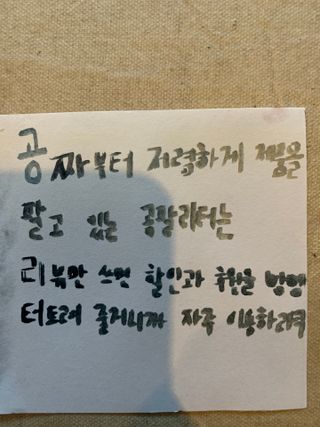 공짜부터 저렴하게 제품을
팔고 있는 공팔리터는
리뷰만 쓰면 할인과 후원을 병행
터트려 줄거니까 자주 이용하려